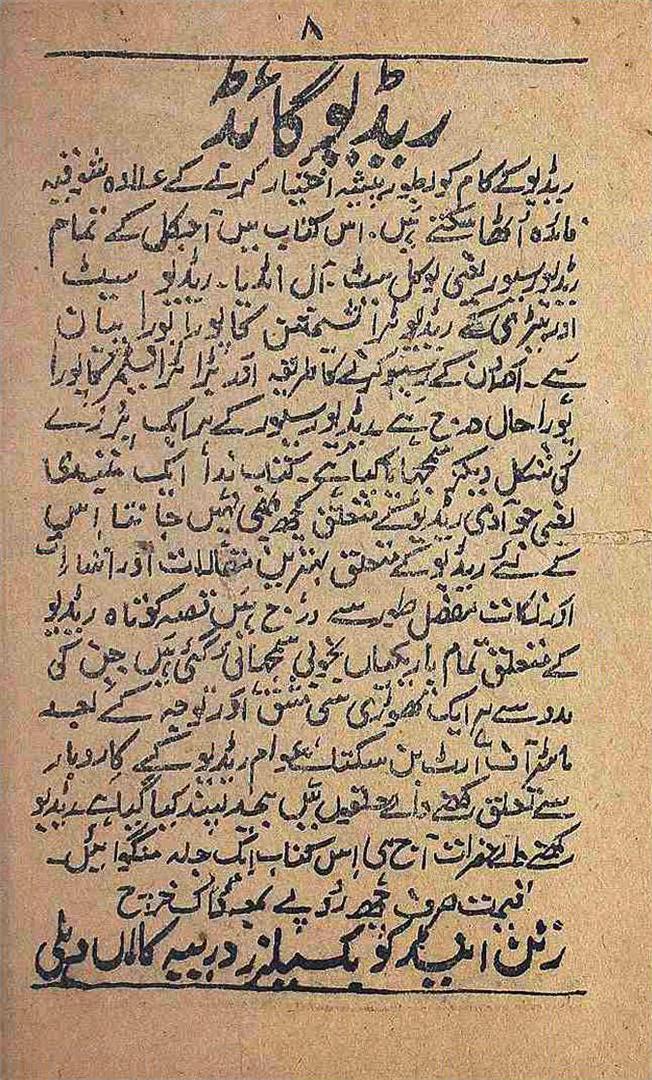 ۸
ریڈیو گائڈ
ریڈیو کے کام کو بطور پیشہ اختیار کرنے کے علاوہ شوقیہ
فائدہ اُٹھا سکتے ہیں۔ اس کتاب میں آجکل کے تمام
ریڈیو رسیور یعنی لوکل سٹ۔ آل انڈیا۔ ریڈیو سیٹ
اور بیٹری کے ریڈیو ٹرانسمشن کا پورا پورا بیان
ہے۔ اُن کے رسیو کرنے کا طریقہ اور ٹرانسفارمر کا پورا
پورا حال درج ہے۔ ریڈیو رسیور کے ہر ایک پُرزے
کی شکل دیکر سمجھایا گیا ہے۔ کتاب ہذا ایک مبتدی
یعنی جو آدمی ریڈیو کے متعلق کچھ بھی نہیں جانتا اِس
کے لئے ریڈیو کے متعلق بہترین مقالات اور اشارات
اور نکات مفصل طور سے درج ہیں قصہ کوتاہ ریڈیو
کے متعلق تمام باریکیاں بخوبی سمجھائی گئی ہیں جن کی
مدد سے ہر ایک تھوڑی سی مشق اور توجہ کے بعد
ماسٹر آف آرٹ بن سکتا ہے عوام ریڈیو کے کاروبار
سے تعلق رکھنے والے حلقوں میں بیحد پسند کیا گیا ہے۔ ریڈیو
رکھنے والے حضرات آج ہی اِس کتاب کی ایک جلد منگوائیں۔
قیمت صرف چھ روپے بمعہ ڈاک خرچ
رتن اینڈ کو بکسیلرز دریبہ کلاں دہلی